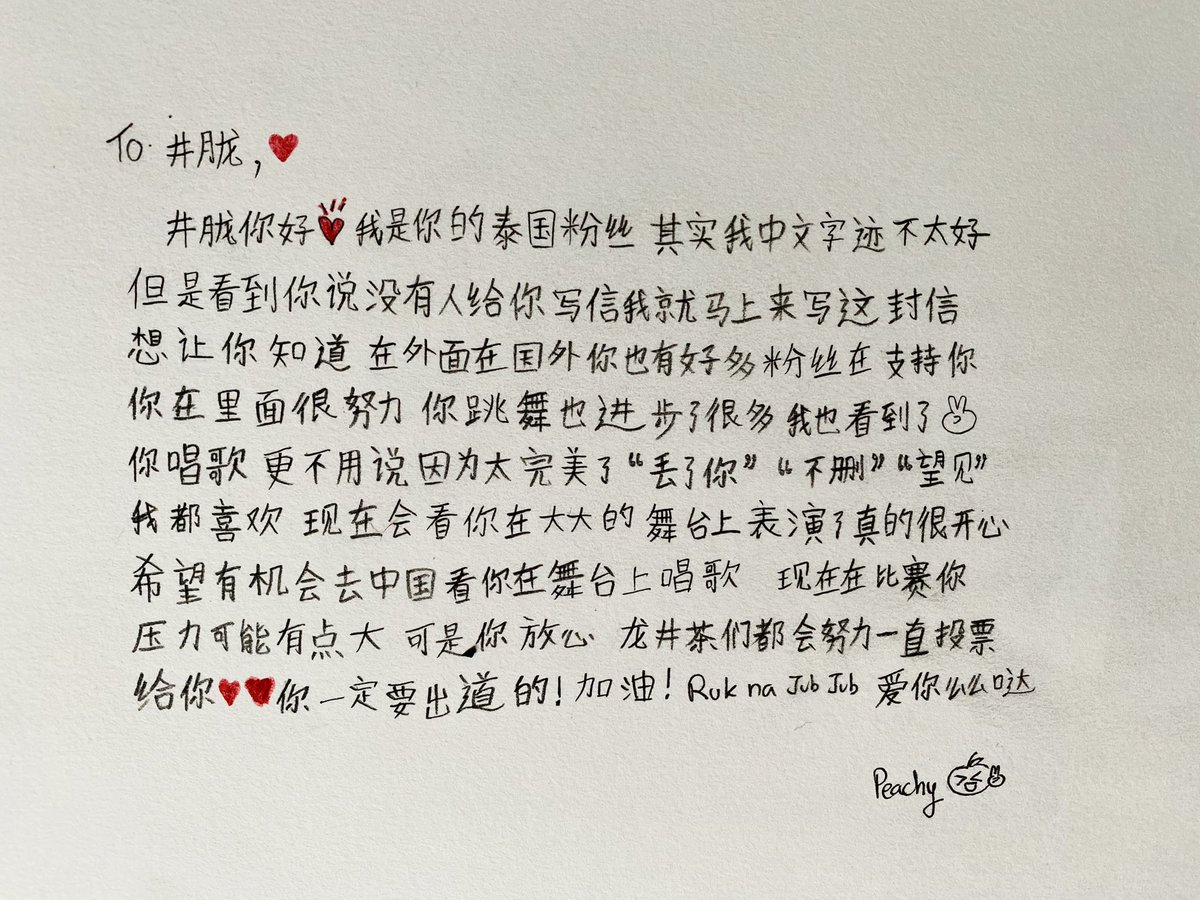 To. 井胧,
井胧你好 我是你的泰国粉丝 其实我中文字迹不太好
但是看到你说没有人给你写信我就马上来写这封信
想让你知道 在外面在国外你也有好多粉丝在支持你
你在里面很努力 你跳舞也进步了很多 我也看到了
你唱歌更不用说因为太完美了“丢了你”“不删”“望见”
我都喜欢 现在会看你在大大的舞台上表演了真的很开心
希望有机会去中国看你在舞台上唱歌 现在在比赛你
压力可能有点大 可是你放心 龙井茶们都会努力一直投票
给你 你一定要出道的!加油! Ruk na Jub Jub 爱你么么哒
Peachy